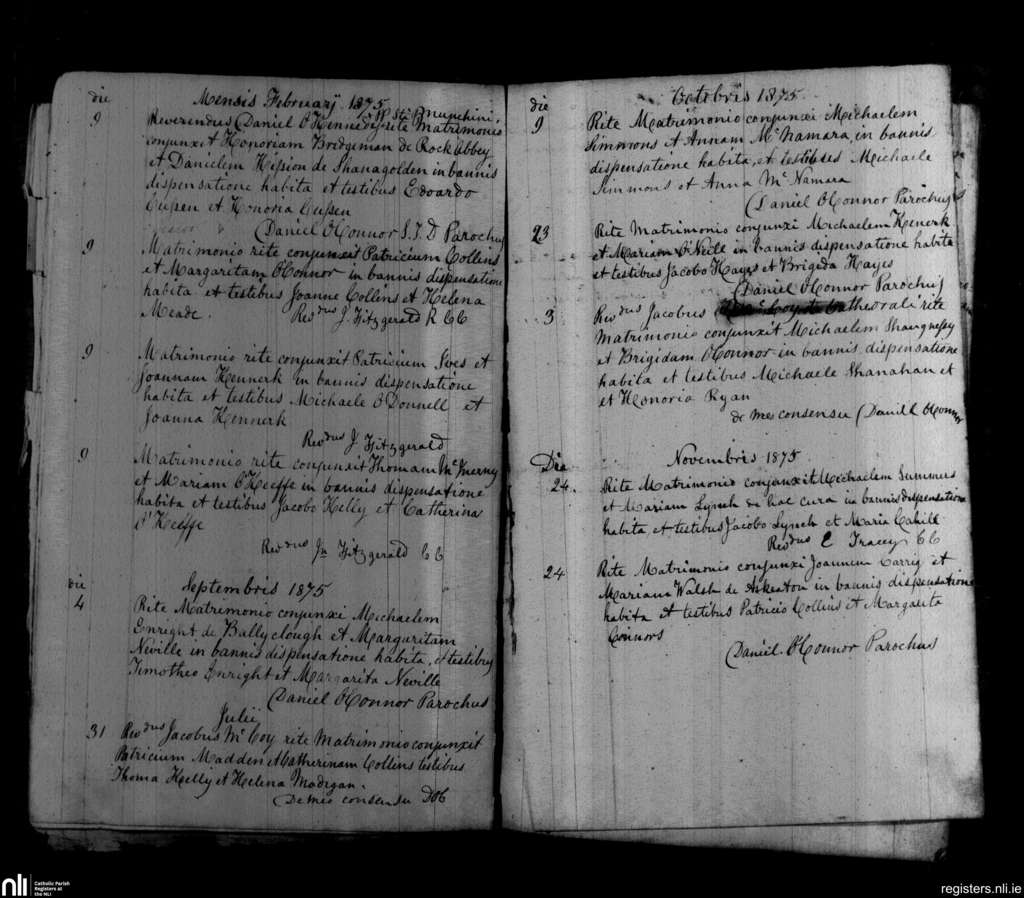 die
Mensis Februarij 1875
9 Reverendus (Daniel O'Kennedy P.P. Sti Munchini, rite Matrimonio
conjunxit Honoriam Bridgeman de Rockabbey
et Danielem Hision de Shanagolden in bannis
dispensatione habita et testibus Edoardo
Cussen et Honoria Cussen
(Daniel O'Connor S.T.D Parochus
9 Matrimonio rite conjunxit Patricium Collens
et Margaritam O'Connor in bannis dispensatione
habita et testibus Joanne Collins et Helena
Meade.
Revdus J. Fitzgerald R CC
9 Matrimonio rite conjunxit Patricium Ives et
Joannam Kennerk in bannis dispensatione
habita et testibus Michaele O'Donnell et
Joanna Kennerk
Revdus J Fitzgerald
9 Matrimonio rite conjunxit Thomam McInerny
et Mariam O'Keeffe in bannis dispensatione
habita et testibus Jacobo Kelly et Catherina
O'Keeffe
Revdus Jn Fitzgerald CC
die
Septembris 1875
4 Rite Matrimonio conjunxi Michaelem
Enright de Ballyclough et Margaritam
Neville in bannis dispensatione habita, et testibus
Timotheo Enright et Margarita Neville
(Daniel O'Connor Parochus
Julii
31 Revdus Jacobus McCoy rite Matrimonio conjunxit
Patricium Madden et Catherinam Collens testibus
Thoma Kelly et Helena Madigan.
De meo consensu DOC
die
Octobris 1875
9 Rite Matrimonio conjunxi Michaelem
Simmons et Annam McNamara, in bannis
dispensatione habita, et testibus Michaele
Simmons et Anna McNamara
(Daniel O'Connor Parochus
23 Rite Matrimonio conjunxi Michaelem Kenerk
et Mariam O'Neill in bannis dispensatione habita
et testibus Jacobo Hayes et Brigida Hayes
(Daniel O'Connor Parochus
3 Revdus Jacobus McCoy de Cathedrali rite
Matrimonio conjunxit Michaelem Shaugnessy
et Brigidam O'Connor in bannis dispensatione
habita et testibus Michaele Shanahan et
et Honoria Ryan
de meo consensu (Daniel O'Connor
Die
Novembris 1875
24. Rite Matrimonio conjunxit Michaelem Summers
et Mariam Lynch de hac cura in bannis dispensatione
habita et testibus Jacobo Lynch et Maria Cahill
Revdus E Tracey CC
24 Rite Matrimonio conjunxi Joannem Carrig et
Mariam Walsh de Askeaton in bannis dispensatione
habita et testibus Patricio Collins et Margarita
Connors
(Daniel O'Connor Parochus
nli
Catholic Parish
Registers at
the NLI
registers.nli.ie